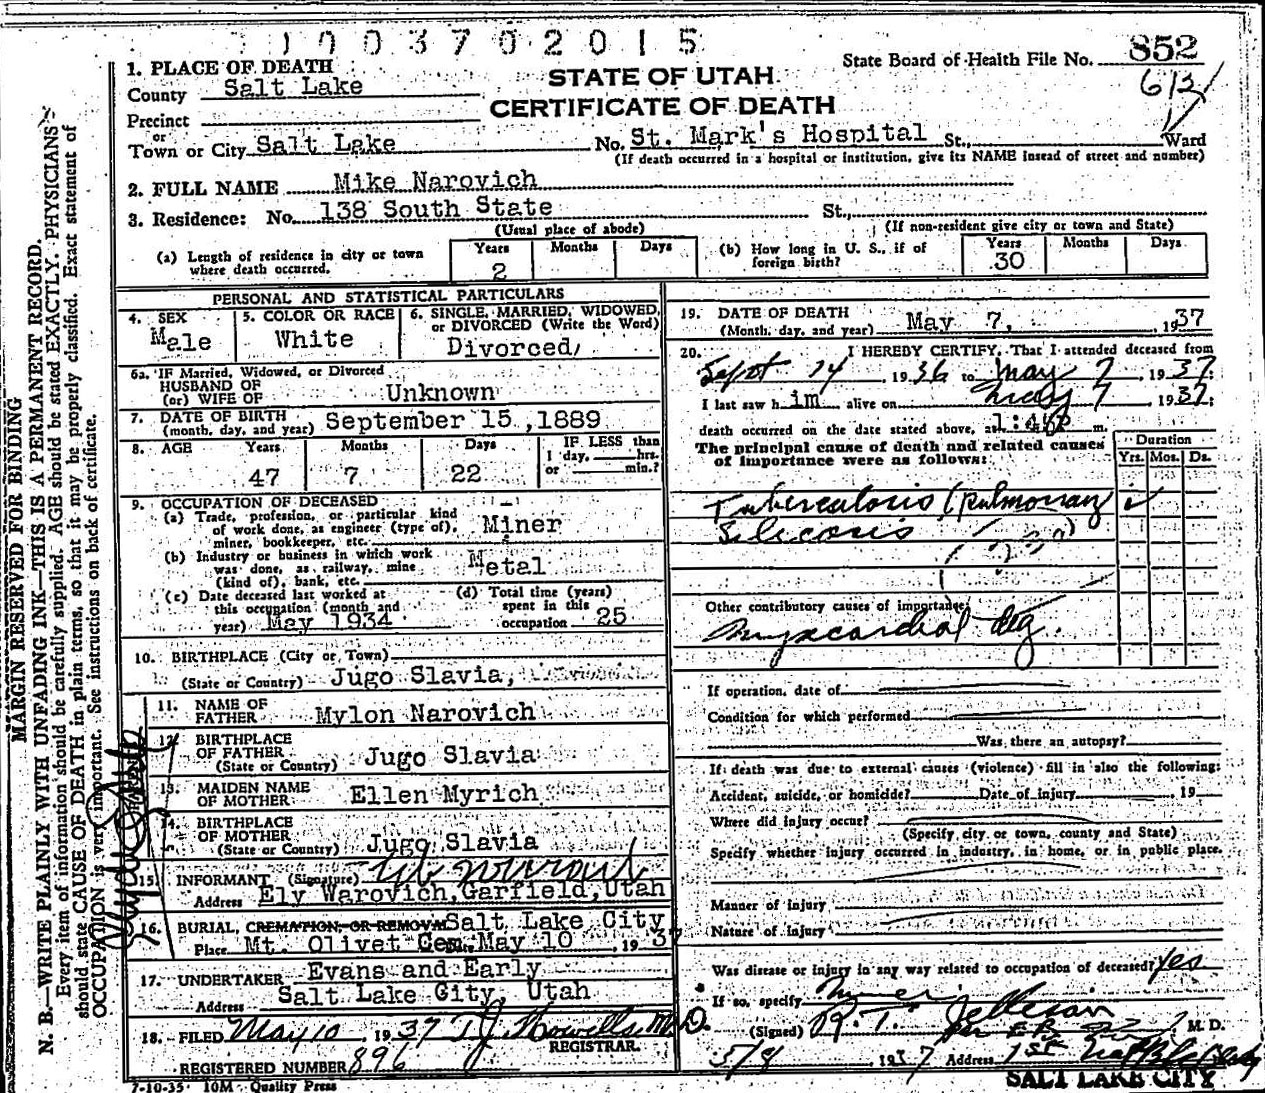 1003702015
State Board of Health File No. 852
612
1. PLACE OF DEATH
STATE OF UTAH
County Salt Lake
CERTIFICATE OF DEATH
Precinct
or
Town or City Salt Lake No. St. Mark's Hospital St., Ward
(If death occurred in a hospital or institution, give its NAME insead of street and number)
2. FULL NAME Mike Narovich
3. Residence: No. 138 South State St.,
(Usual place of abode) (If non-resident give city or town and State)
(a) Length of residence in city or town where death occurred. Years 2 Months Days (b) How long in U. S., if of foreign birth? Years 30 Months Days
PERSONAL AND STATISTICAL PARTICULARS
4. SEX Male
5. COLOR OR RACE White
6. SINGLE, MARRIED, WIDOWED, or DIVORCED (Write the Word) Divorced
6a. IF Married, Widowed, or Divorced
HUSBAND OF
(or) WIFE OF Unknown
7. DATE OF BIRTH
(month, day, and year) September 15, 1889
8. AGE Years 47 Months 7 Days 22 IF LESS than 1 day, hrs. or min.?
9. OCCUPATION OF DECEASED
(a) Trade, profession, or particular kind of work done, as engineer (type of), miner, bookkeeper, etc. Miner
(b) Industry or business in which work was done, as railway, mine (kind of), bank, etc. Metal
(c) Date deceased last worked at this occupation (month and year) May 1934
(d) Total time (years) spent in this occupation 25
10. BIRTHPLACE (City or Town)
(State or Country) Jugo Slavia,
11. NAME OF FATHER Mylon Narovich
12. BIRTHPLACE OF FATHER
(State or Country) Jugo Slavia
13. MAIDEN NAME OF MOTHER Ellen Myrich
14. BIRTHPLACE OF MOTHER
(State or Country) Jugo Slavia
15. INFORMANT (Signature)
Address Ely Warovich, Garfield, Utah
16. BURIAL, CREMATION, OR REMOVAL Salt Lake City
Place Mt. Olivet Cem. May 10 , 1937
17. UNDERTAKER Evans and Early
Address Salt Lake City, Utah
18. FILED May 10 , 1937 T J Howells M.D.
REGISTRAR.
REGISTERED NUMBER 896
7-10-35 10M Quality Press
19. DATE OF DEATH
(Month, day, and year) May 7, , 1937
20. I HEREBY CERTIFY, That I attended deceased from
Sept 14 , 1936 to May 7 , 1937.
I last saw him alive on May 7 , 1937;
death occurred on the date stated above, at m.
The principal cause of death and related causes of importance were as follows: Duration
Yrs. Mos. Ds.
Tuberculosis (Pulmonary)
Silicosis
Other contributory causes of importance
Myocardial deg.
If operation, date of
Condition for which performed
Was there an autopsy?
If death was due to external causes (violence) fill in also the following:
Accident, suicide, or homicide? Date of injury , 19
Where did injury occur?
(Specify city or town, county and State)
Specify whether injury occurred in industry, in home, or in public place.
Manner of injury
Nature of injury
Was disease or injury in any way related to occupation of deceased? Yes
If so, specify Miner
(Signed) R. T. Jellison M. D.
5/8 1937 Address 1st Nat Bk Bldg
SALT LAKE CITY
MARGIN RESERVED FOR BINDING
N. B.—WRITE PLAINLY WITH UNFADING INK—THIS IS A PERMANENT RECORD.
Every item of information should be carefully supplied. AGE should be stated EXACTLY. PHYSICIANS
should state CAUSE OF DEATH in plain terms, so that it may be properly classified. Exact statement of
OCCUPATION is very important. See instructions on back of certificate.